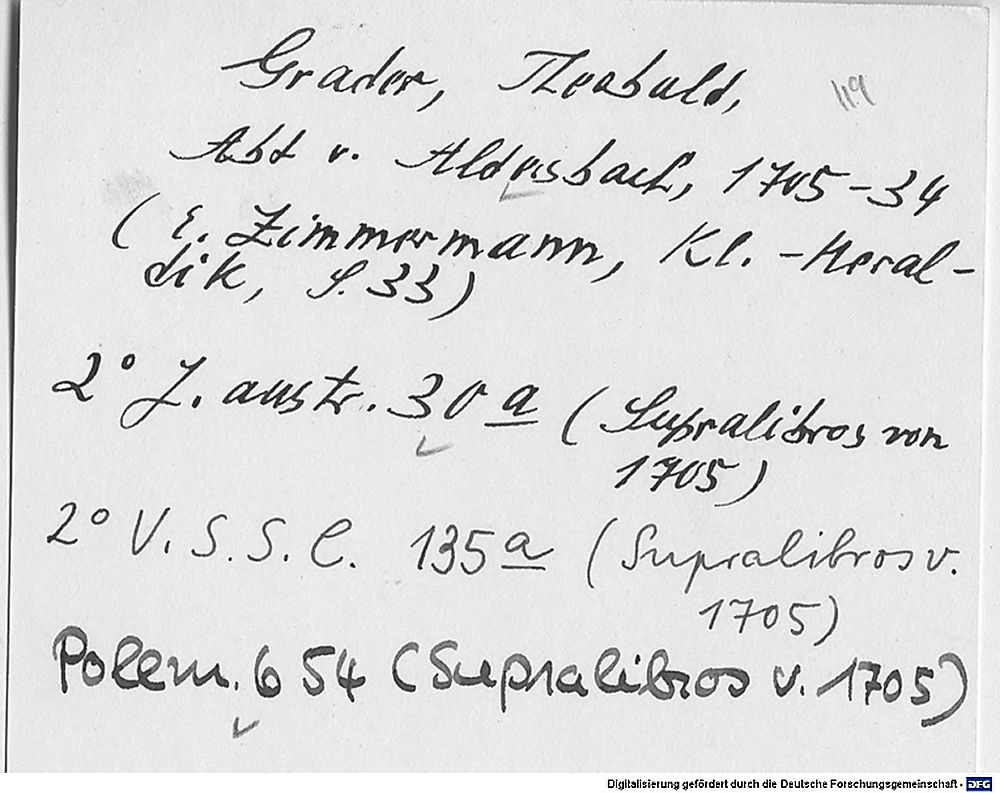 Grader, Theobald,
119
Abt v. Aldersbach, 1705-34
(E. Zimmermann, Kl. -Heral-
dik, S. 33)
2° J. austr. 30 a (Supralibros von
1705)
2° V. S. S. C. 135 a (Supralibros v.
1705)
Polem. 654 (Supralibros v. 1705)
Digitalisierung gefördert durch die Deutsche Forschungsgemeinschaft - DFG